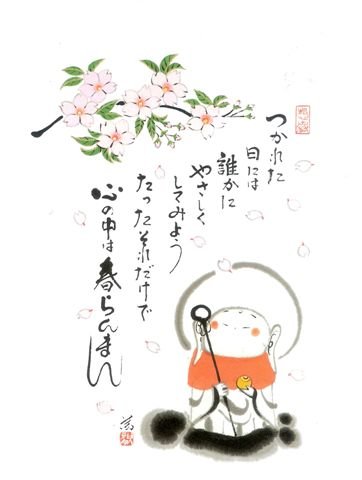 つかれた
日には
誰かに
やさしく
してみよう
たったそれだけで
心の中は春らんまん